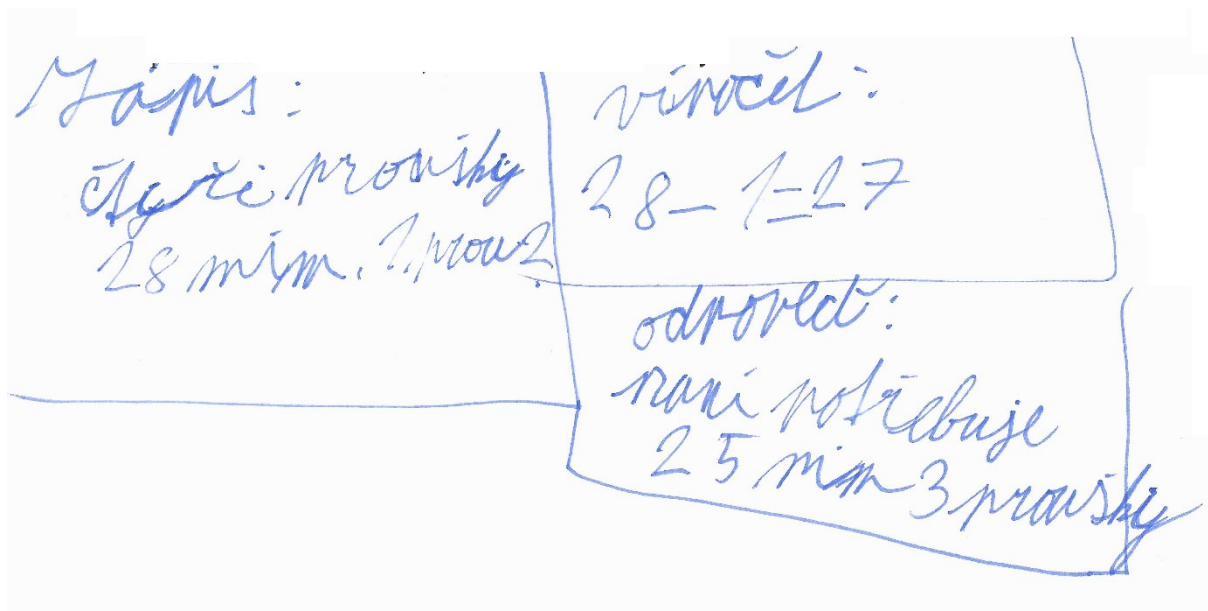 Zápis:
čtyři proušky
28 mim. 1 prou?
víročet:
28-1=27
odpověď:
paní potřebuje
25 mim 3 proušky